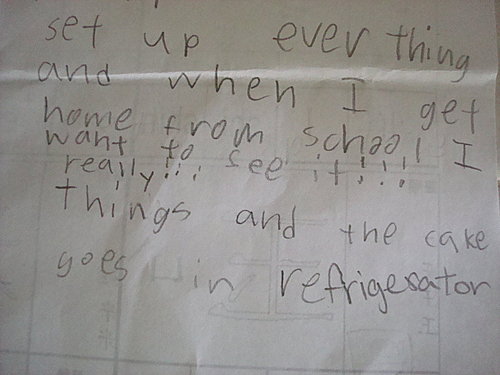 set up ever thing
and when I get
home from school I
want to see it!!!!
really!!!
things and the cake
goes in refrigerator